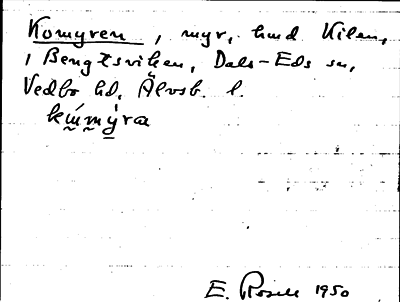 Komyren, myr, hmd Kilen,
i Bengtsviken, Dals-Eds sn,
Vedbo hd, Älvsb. l.
kṷ́m̰ýra
E. Rosell 1950